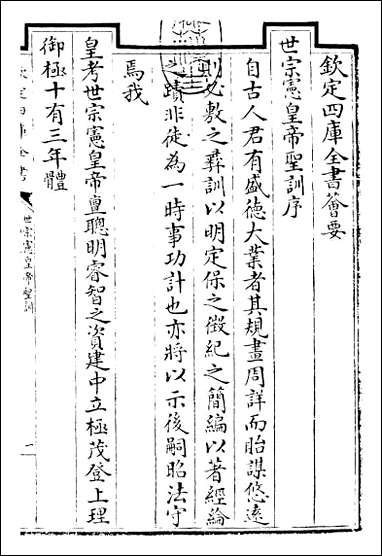 欽定四庫全書薈要
世宗憲皇帝聖訓序
自古人君有盛德大業者其規畫周詳而貽謀悠遠
則必敷之彝訓以明定保之徵紀之簡編以著經綸
之蹟非徒為一時事功計也亦將以示後嗣昭法守
焉我
皇考世宗憲皇帝亶聰明睿智之資建中立極茂登上理
御極十有三年體
欽定四庫全書
世宗憲皇帝聖訓
一